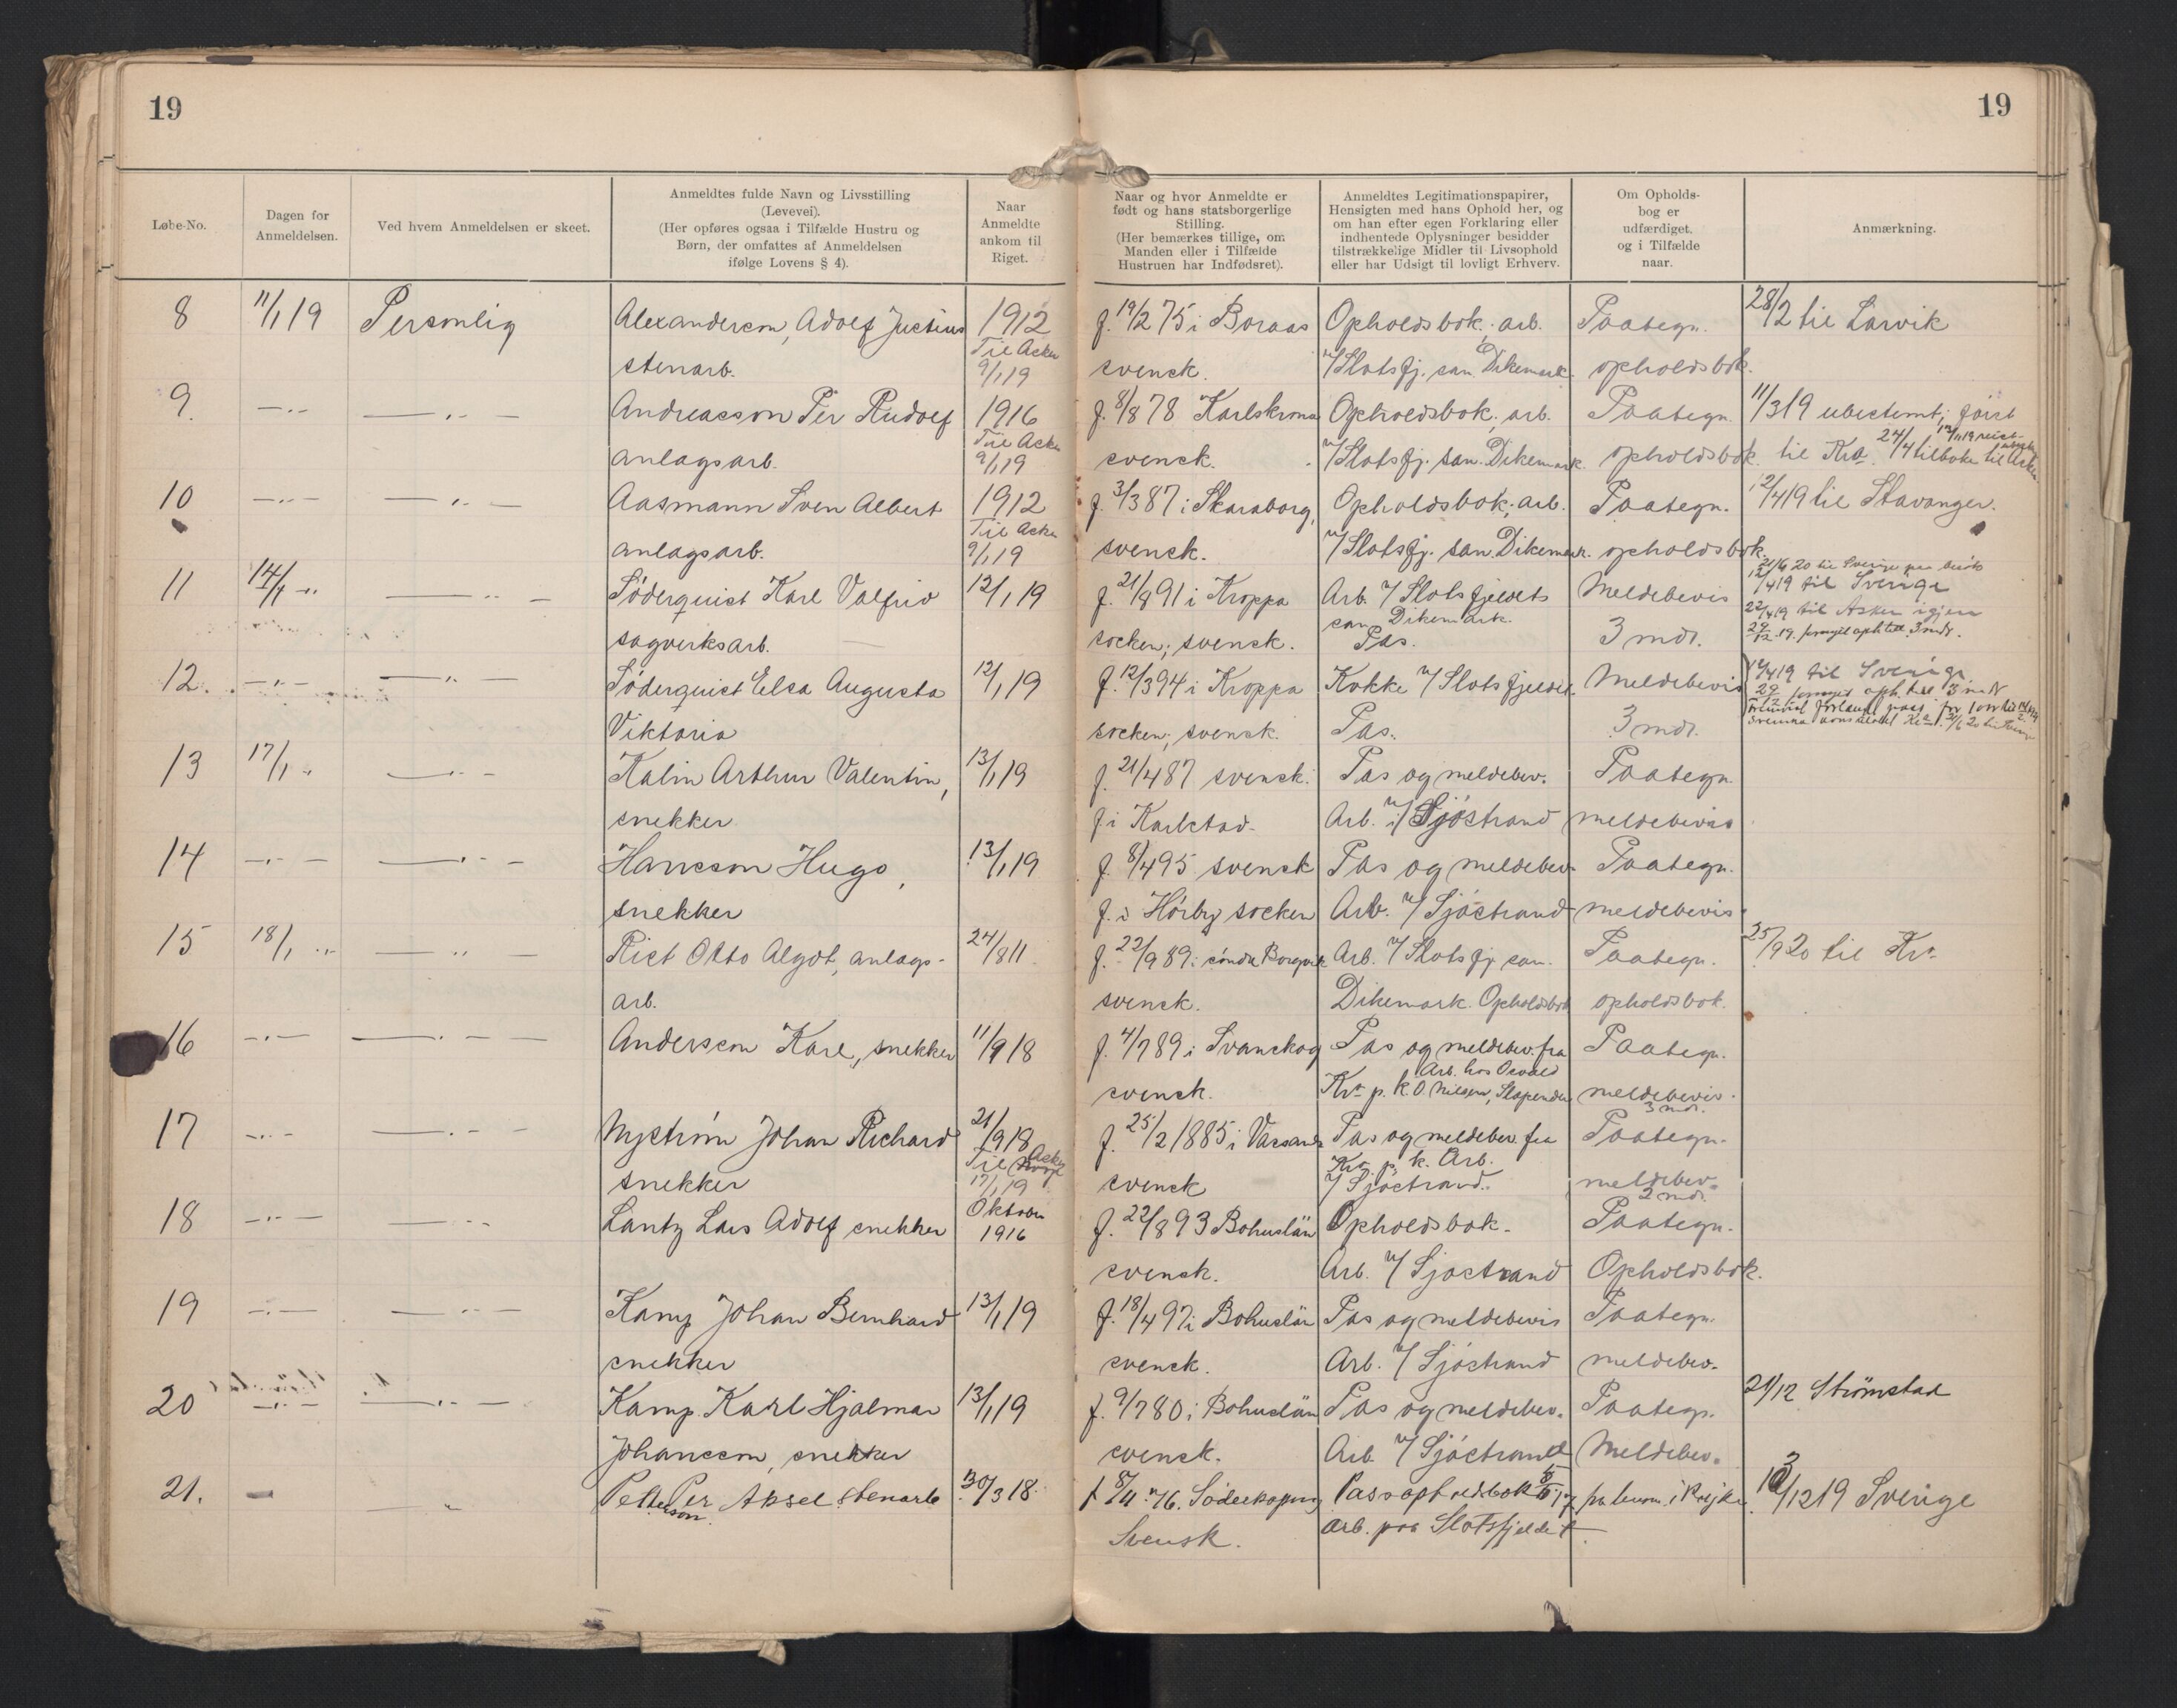 19
19
Løbe-No.
Dagen for
Anmeldelsen.
Ved hvem Anmeldelsen er skeet.
Anmeldtes fulde Navn og Livsstilling
(Levevei).
(Her opføres ogsaa i Tilfælde Hustru og
Børn, der omfattes af Anmeldelsen
ifølge Lovens § 4).
Naar
Anmeldte
ankom til
Riget.
Naar og hvor Anmeldte er
født og hans statsborgerlige
Stilling.
(Her bemærkes tillige, om
Manden eller i Tilfælde
Hustruen har Indfødsret).
Anmeldtes Legitimationspapirer,
Hensigten med hans Ophold her, og
om han efter egen Forklaring eller
indhentede Oplysninger besidder
tilstrækkelige Midler til Livsophold
eller har Udsigt til lovligt Erhverv.
Om Opholds-
bog er
udfærdiget.
og i Tilfælde
naar.
Anmærkning.
8 11/1 19 Personlig Alexanderson, Adolf Justius 1912 f. 19/2 75 i Boraas Opholdsbok; arb. Paategn. 28/2 til Larvik
Til Asker
stenarb. 9/1 19 svensk. v/Slotsfj. san. Dikemark opholdsbok.
9. —.— —.— Andreasson Per Rudolf 1916 f. 8/8 78 Karlskrona Opholdsbok; arb. Paategn. 11/3 19 ubestemt; først
Til Asker
anlagsarb. 9/1 19 svensk. v/Slotsfj. san. Dikemark. opholdsbok. til Kra. 24/4 tilbake til Asker
10 —.— —.— Aasmann Sven Albert 1912 f. 3/3 87 i Skaraborg, Opholdsbok; arb. Paategn. 12/4 19 til Stavanger.
Til Asker
anlagsarb. 9/1 19 svensk. v/Slotsfj. san. Dikemark. opholdsbok.
21/6 20 til Sverige paa besøk
11 14/1 " —.— Söderquist Karl Valfrid 12/1 19 f. 21/8 91 i Kroppa Arb. v/Slotsfjeldets Meldebevis 12/4 19 til Sverige
san. Dikemark. 22/4 19 til Asker igjen
sagverksarb. socken; svensk. Pas. 3 mdr. 29/12 19. fornyet oph.till. 3 mdr.
12. —.— —.— Söderquist Elsa Augusta 12/1 19 f. 12/3 94 i Kroppa Kokke v/Slotsfjeldet. Meldebevis 12/4 19 til Sverige
29/12 fornyet oph.till. 3 mdr
Viktoria socken; svensk. Pas. 3 mdr.
13 17/1 " —.— Kalin Arthur Valentin, 13/1 19 f. 21/4 87 svensk. Pas og meldebev. Paategn.
snekker f i Karlstad. Arb. v/Sjöstrand meldebevis
14 —.— —.— Hansson Hugo, 13/1 19 f. 8/4 95 svensk Pas og meldebev. Paategn.
snekker f. i Hörby socken Arb. v/Sjöstrand meldebevis.
15 18/1 " —.— Rist Otto Algot, anlags- 24/8 11 f. 22/9 89 i Arb. v/Slotsfj. san. Paategn. 25/9 20 til Kra
arb. svensk. Dikemark. Opholdsbok opholdsbok.
16 —.— —.— Anderson Karl, snekker 11/9 18 f. 4/7 89 i Svanskog Pas og meldebev. fra Paategn.
Arb. hos Osvald
svensk. Kra p. k. O. Nilsen, Slependen meldebevis.
3 mdr.
17 —.— —.— Nyström Johan Richard 21/9 18 f. 25/2 1885 i Pas og meldebev. fra Paategn.
Til Asker Kra p. k. Arb.
snekker 17/1 19 svensk v/Sjöstrand. meldebev.
2 mdr.
18 —.— —.— Lantz Lars Adolf snekker Oktober 1916 f. 22/8 93 Bohuslän Opholdsbok. Paategn.
svensk. Arb. v/Sjöstrand Opholdsbok.
19 —.— —.— Kamp Johan Bernhard 13/1 19 f. 18/4 97 i Bohuslän Pas og meldebevis Paategn.
snekker svensk. Arb. v/Sjöstrand meldebev.
20 —.— —.— Kamp Karl Hjalmar 13/1 19 f. 9/7 80 i Bohuslän Pas og meldebev. Paategn. 21/12 Strømstad
Johansson, snekker svensk. Arb. v/Sjöstrand Meldebev.
21. — " Petterson Per Aksel stenarb 3/3 18. f 8/11 76. Söderkoping Pass opholdsbok 17 3/12 19 Sverige
Svensk. arb. paa Slotsfjeldet